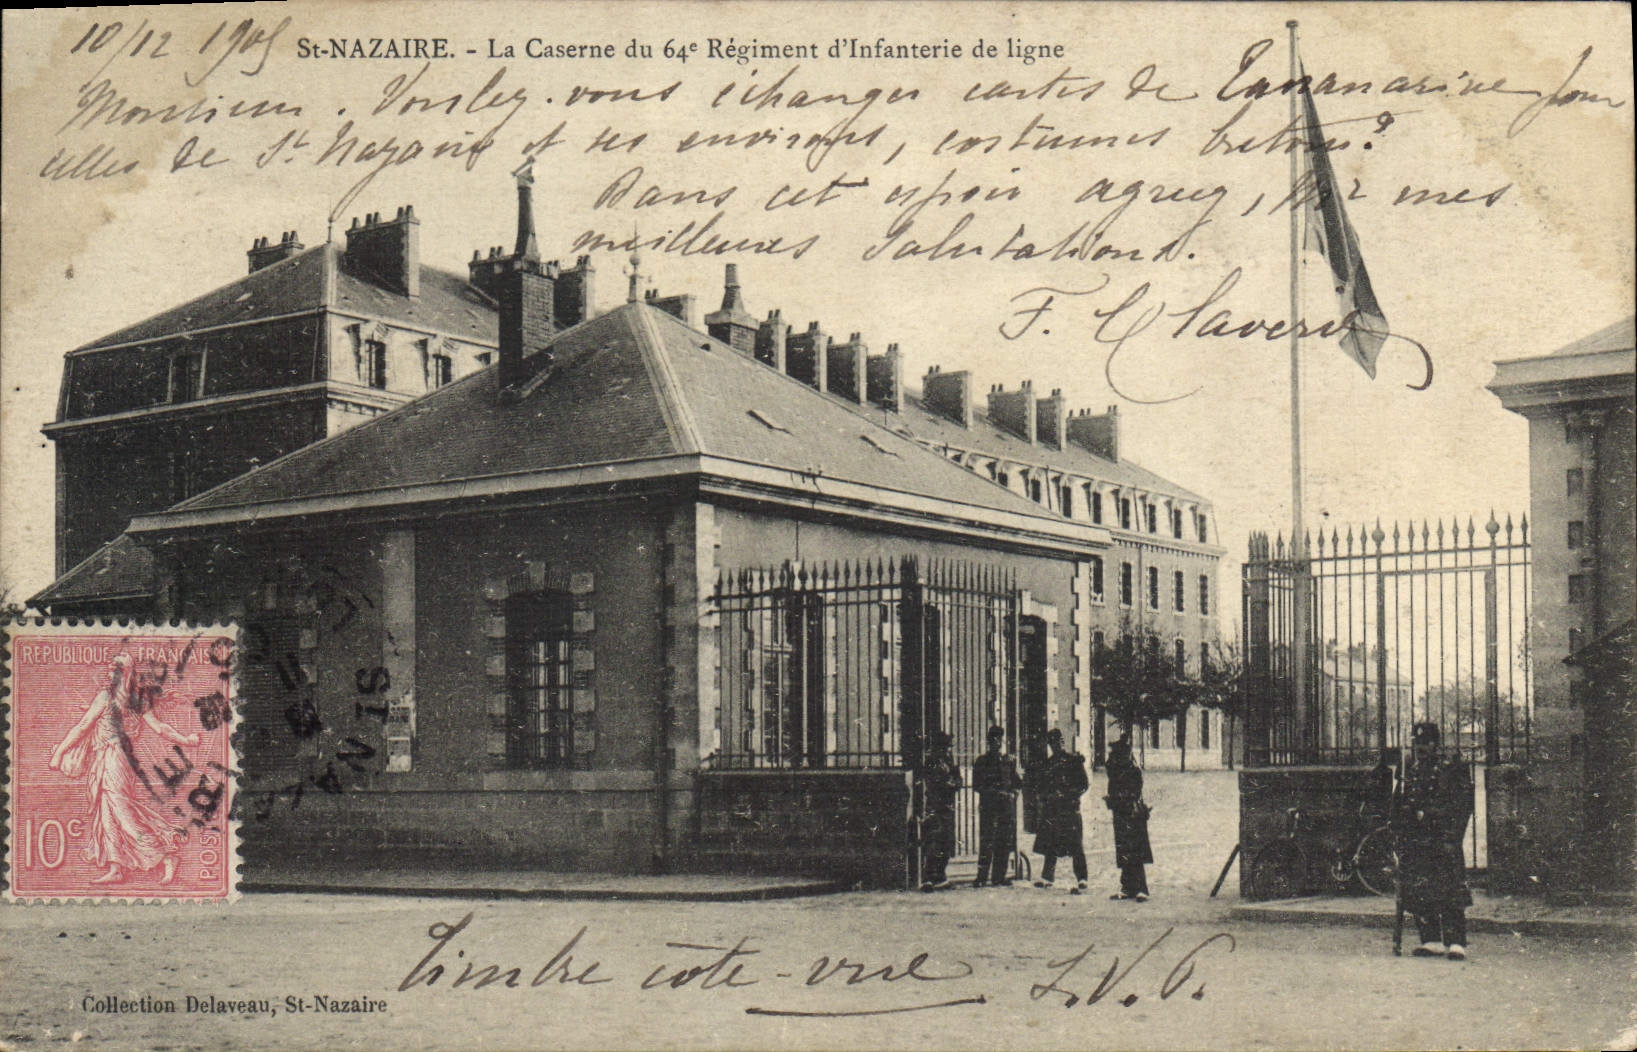 10/12 1905
St-NAZAIRE. - La Caserne du 64e Régiment d'Infanterie de ligne
Monsieur. Voulez-vous échanger cartes de Tananarive pour
celles de St Nazaire et ses environs, costumes bretons?
Dans cet espoir agréez, Mr mes
meilleures Salutations.
F. Claverie
REPUBLIQUE FRANÇAISE
10c
POSTES
ST NAZAIRE
Timbre côté-vue S.V.P.
Collection Delaveau, St-Nazaire